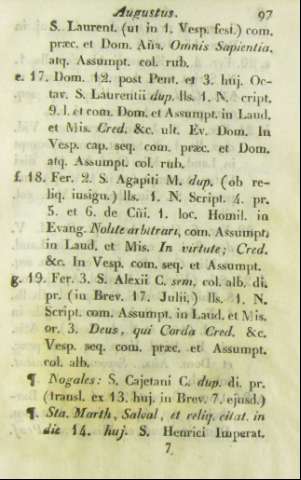 Augustus. 97
S. Laurent. (ut in 1. Vesp. fest.) com.
præc. et Dom. Aña. Omnis Sapientia.
atq. Assumpt. col. rub.
e. 17. Dom. 12. post Pent. et 3. huj. Oc-
tav. S. Laurentii dup. lls. 1. N. cript.
9. l. et com. Dom. et Assumpt. in Laud.
et Mis. Cred. &c. ult. Ev. Dom. In
Vesp. cap. seq. com. præc. et Dom.
atq. Assumpt. col. rub.
f. 18. Fer. 2. S. Agapiti M. dup. (ob re-
liq. insign.) lls. 1. N. Script. 4. pr.
5. et 6. de Cñi. 1. loc. Homil. in
Evang. Nolite arbitrari, com. Assumpt.
in Laud. et Mis. In virtute; Cred.
&c. In Vesp. com. seq. et Assumpt.
g. 19. Fer. 3. S. Alexii C. sem. col. alb. di.
pr. (in Brev. 17. Julii.) lls. 1. N.
Script. com. Assumpt. in Laud. et Mis.
or. 3. Deus, qui Corda Cred. &c.
Vesp. seq. com. præc. et Assumpt.
col. alb.
¶ Nogales: S. Cajetani C. dup. di. pr.
(transl. ex 13. huj. in Brev. 7. ejusd.)
¶ Sta. Marth, Salval, et reliq. citat. in
die 14. huj. S. Henrici Imperat.
7